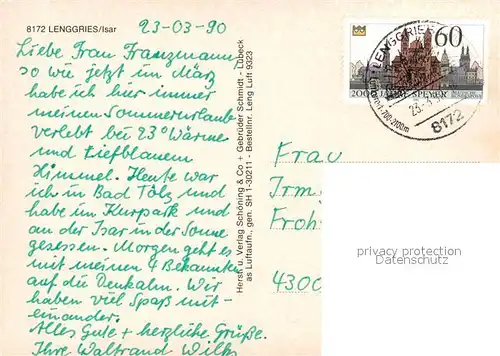 8172 LENGGRIES/Isar
23-03-90
Liebe Frau Franzmann,
so wie jetzt im März
habe ich hier immer
meinen Sommerurlaub
verlebt bei 23° Wärme
und tiefblauem
Himmel. Heute war
ich in Bad Tölz und
habe im Kurpark und
an der Isar in der Sonne
gesessen. Morgen geht es
mit meinen 4 Bekannten
auf die Denkalm. Wir
haben viel Spaß mit-
einander.
Alles Gute + herzliche Grüße.
Ihre Waltraud Wilk
Herst. u. Verlag Schöning & Co + Gebrüder Schmidt - Lübeck
as Luftaufn., gen. SH 1-30211 - Bestellnr. Leng Luft 9323
60
2000 JAHRE SPEYER
LENGGRIES
23.3
700-2100m
8172
Frau
Irm
Froh
4300
privacy protection
watermark